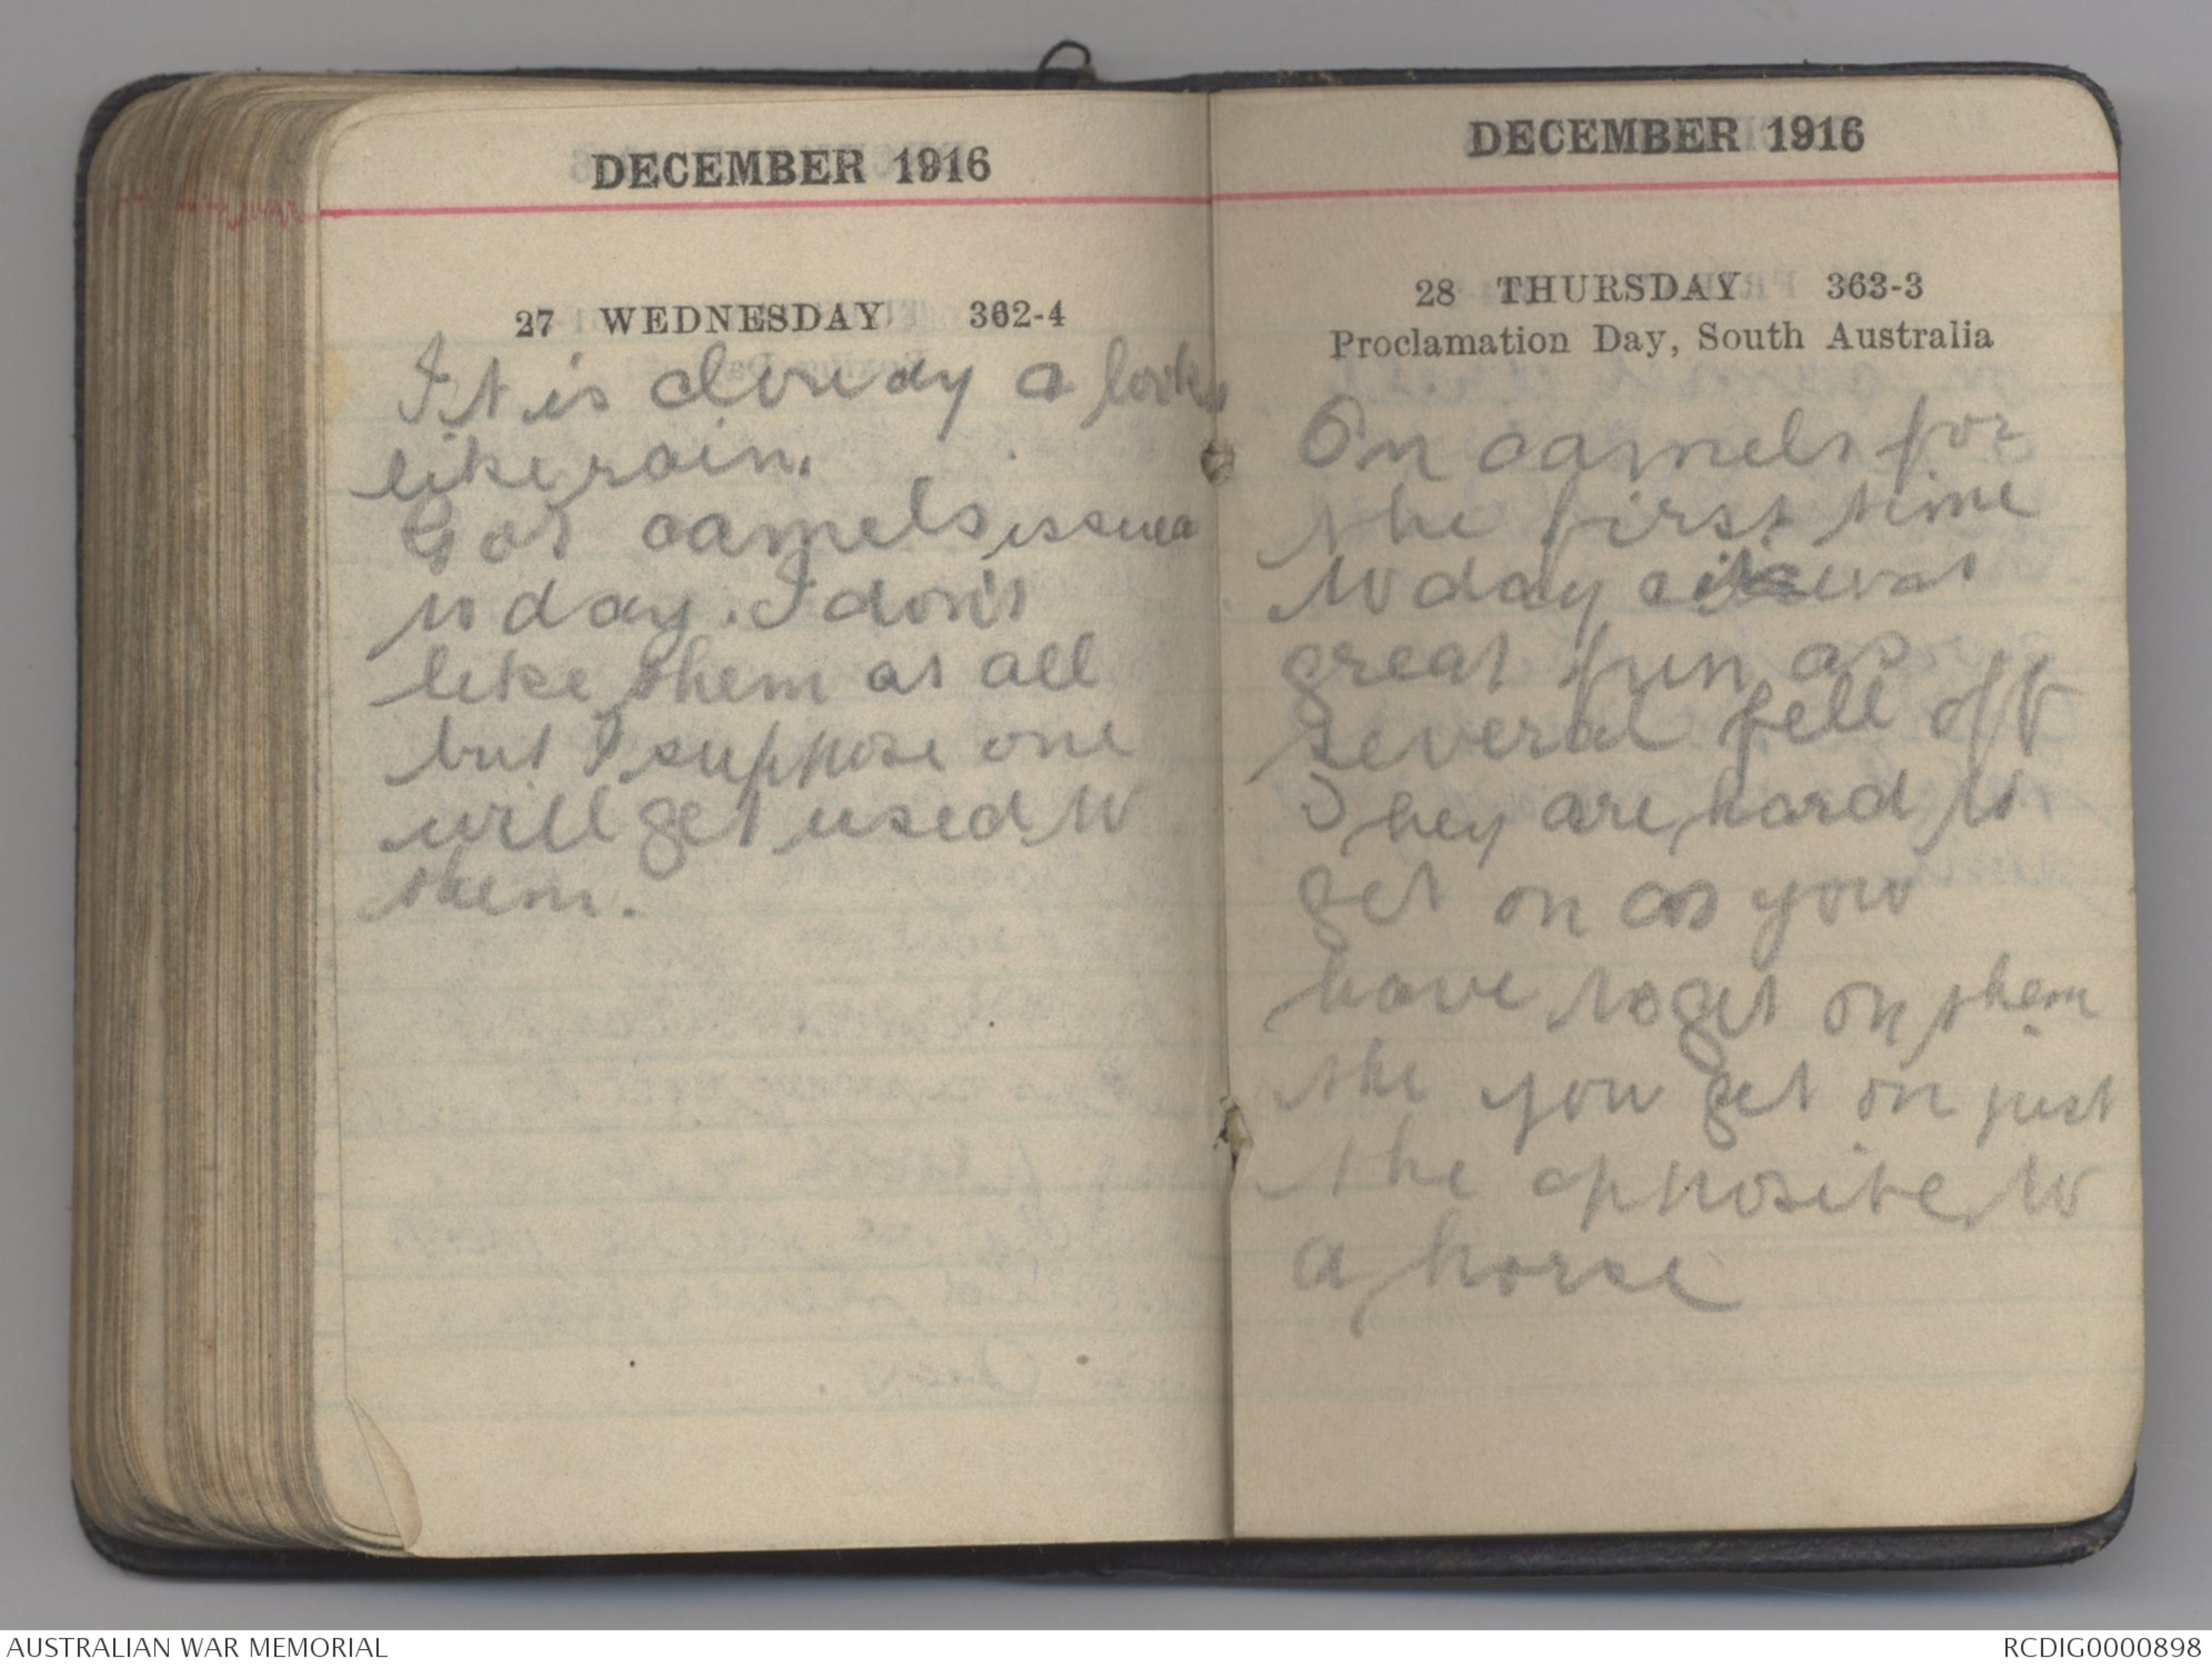 DECEMBER 1916
27 WEDNESDAY 362-4
It is cloudy a looks
like rain.
Got camels issued
to day. I don't
like them at all
but I suppose one
will get used to
them.
DECEMBER 1916
28 THURSDAY 363-3
Proclamation Day, South Australia
On camels for
the first time
to day & it was
great fun as
several fell off
They are hard to
get on as you
have to get on them
the you get on just
the opposite to
a horse
AUSTRALIAN WAR MEMORIAL
RCDIG0000898